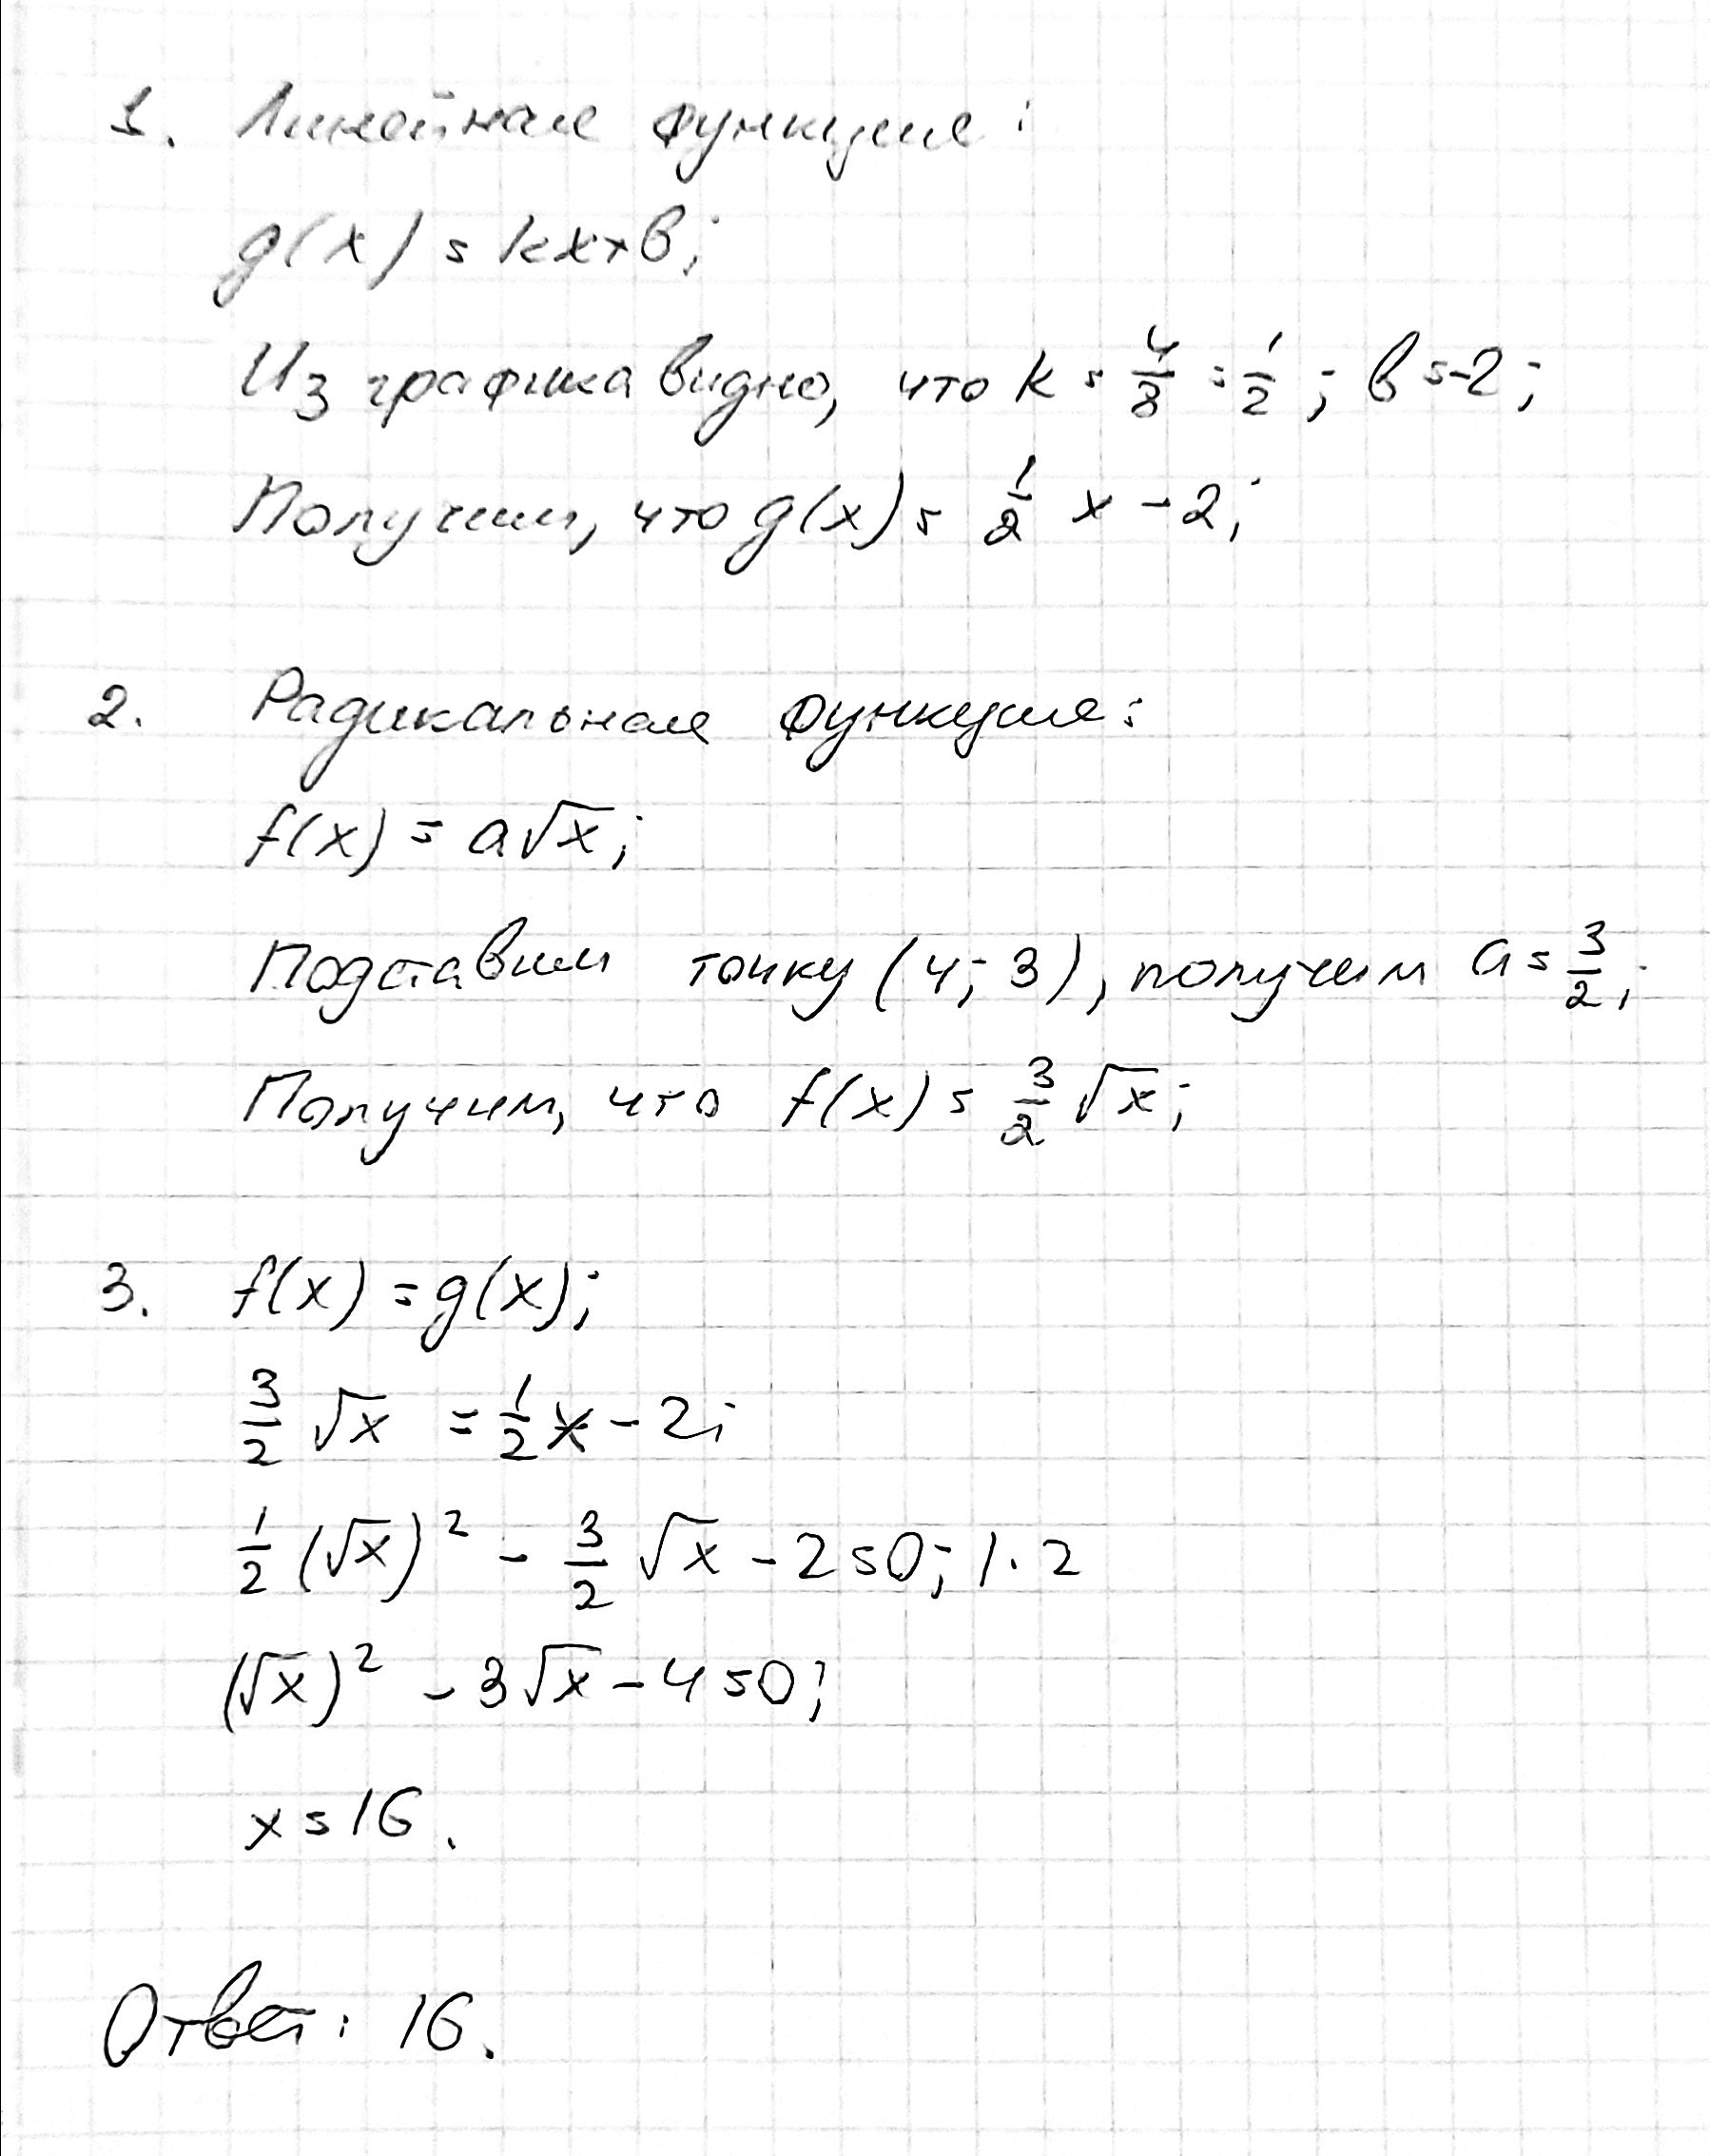 1. Линейная функция:
g(x) = kx+b;
Из графика видно, что k = 4/8 = 1/2; b = -2;
Получим, что g(x) = 1/2 x - 2;
2. Радикальная функция:
f(x) = a√x;
Подставим точку (4; 3), получим a = 3/2;
Получим, что f(x) = 3/2 √x;
3. f(x) = g(x);
3/2 √x = 1/2 x - 2;
1/2 (√x)² - 3/2 √x - 2 = 0; | · 2
(√x)² - 3√x - 4 = 0;
x = 16.
Ответ: 16.